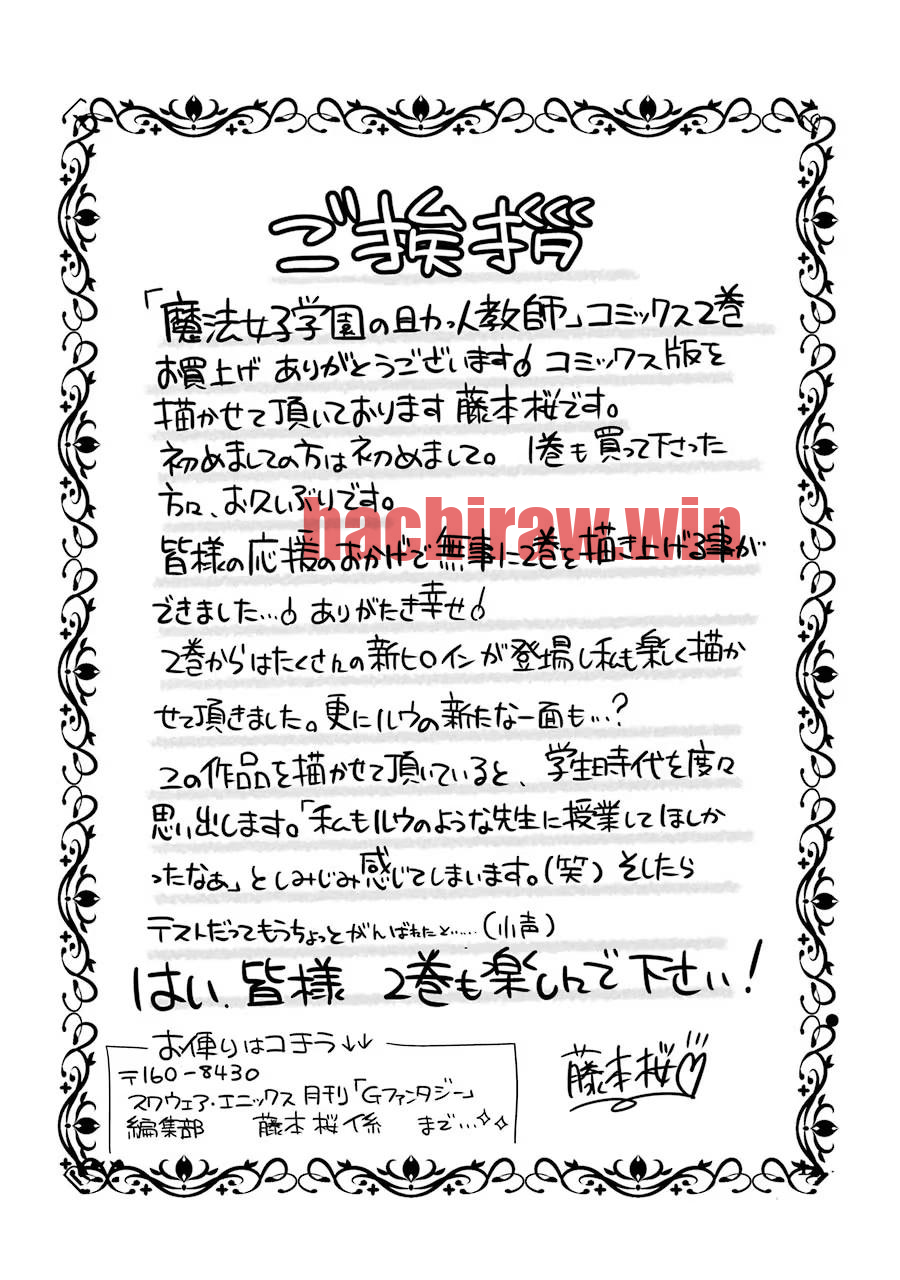 ご挨拶
「魔法女子学園の助っ人教師」コミックス2巻
お買上げ ありがとうございます! コミックス版を
描かせて頂いております 藤本桜です。
初めましての方は初めまして。 1巻も買って下さった
方々、お久しぶりです。
hachiraw.win
皆様の応援のおかげで無事に2巻を描き上げる事が
できました…! ありがたき幸せ!
2巻からはたくさんの新ヒロインが登場し私も楽しく描か
せて頂きました。更にルウの新たな一面も…?
この作品を描かせて頂いていると、学生時代を度々
思い出します。「私もルウのような先生に授業してほしか
ったなぁ」としみじみ感じてしまいます。(笑) そしたら
テストだってもうちょっとがんばれたと……(小声)
はい、皆様 2巻も楽しんで下さい!
お便りはコチラ↓↓
〒160-8430
スクウェア・エニックス 月刊「Gファンタジー」
編集部 藤本桜係 まで…✧✧
藤本桜♡